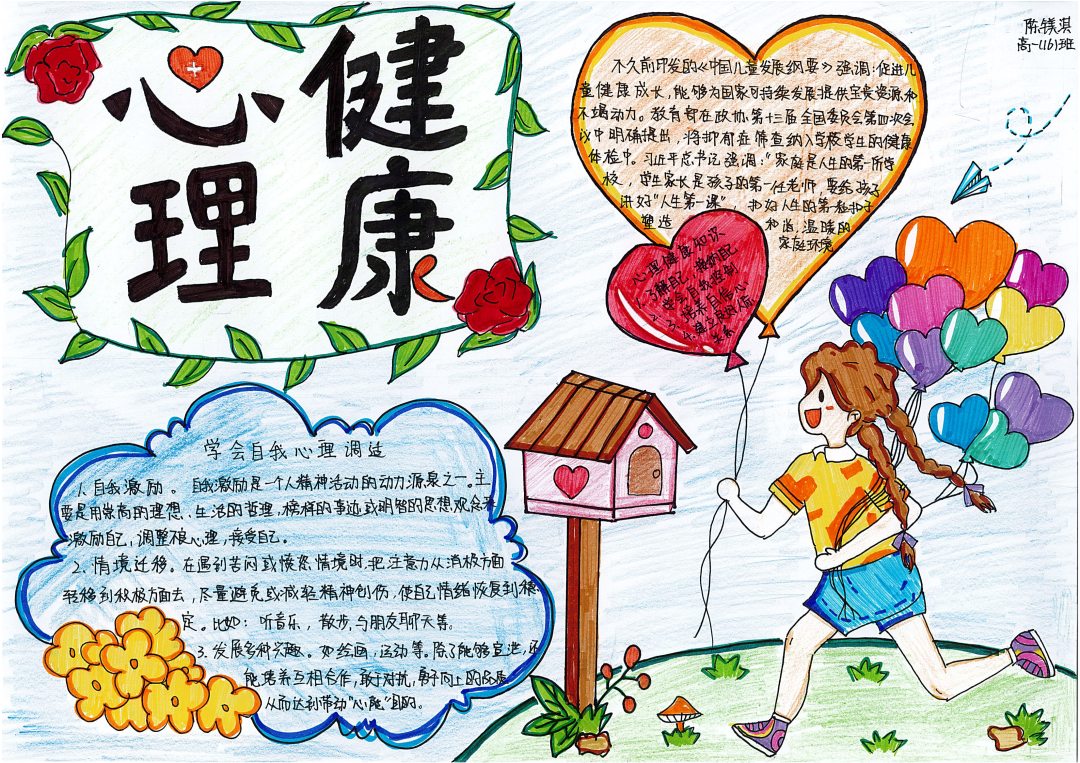 心理
健康
陈镁淇
高一(16)班
不久前印发的《中国儿童发展纲要》强调：促进儿
童健康成长，能够为国家可持续发展提供宝贵资源和
不竭动力。教育部在政协第十三届全国委员会第四次会
议中明确提出，将抑郁症筛查纳入学校学生的健康
体检中。习近平总书记强调："家庭是人生的第一所学
校，学生家长是孩子的第一任老师，要给孩子
讲好"人生第一课" 扣好人生的第一粒扣子
塑造 和谐，温暖的
家庭环境
心理健康知识
1.了解自己，接纳自己
2.学会自我控制
3.培养自信心
4.建立良好人际
关系
学会自我心理调适
1.自我激励。自我激励是一个人精神活动的动力源泉之一。主
要是用崇高的理想、生活的哲理，榜样的事迹或明智的思想观念来
激励自己，调整心理，接受自己。
2.情境迁移。在遇到苦闷或愤怒情境时，把注意力从消极方面
转移到积极方面去，尽量避免或减轻精神创伤，使自己情绪恢复到稳
定。比如：听音乐，散步，与朋友聊天等。
3.发展多种兴趣。如绘画，运动等。除了能够宣泄，还
能培养互相合作，敢于对抗，勇于向上的品质
从而达到带动"心能"目的。